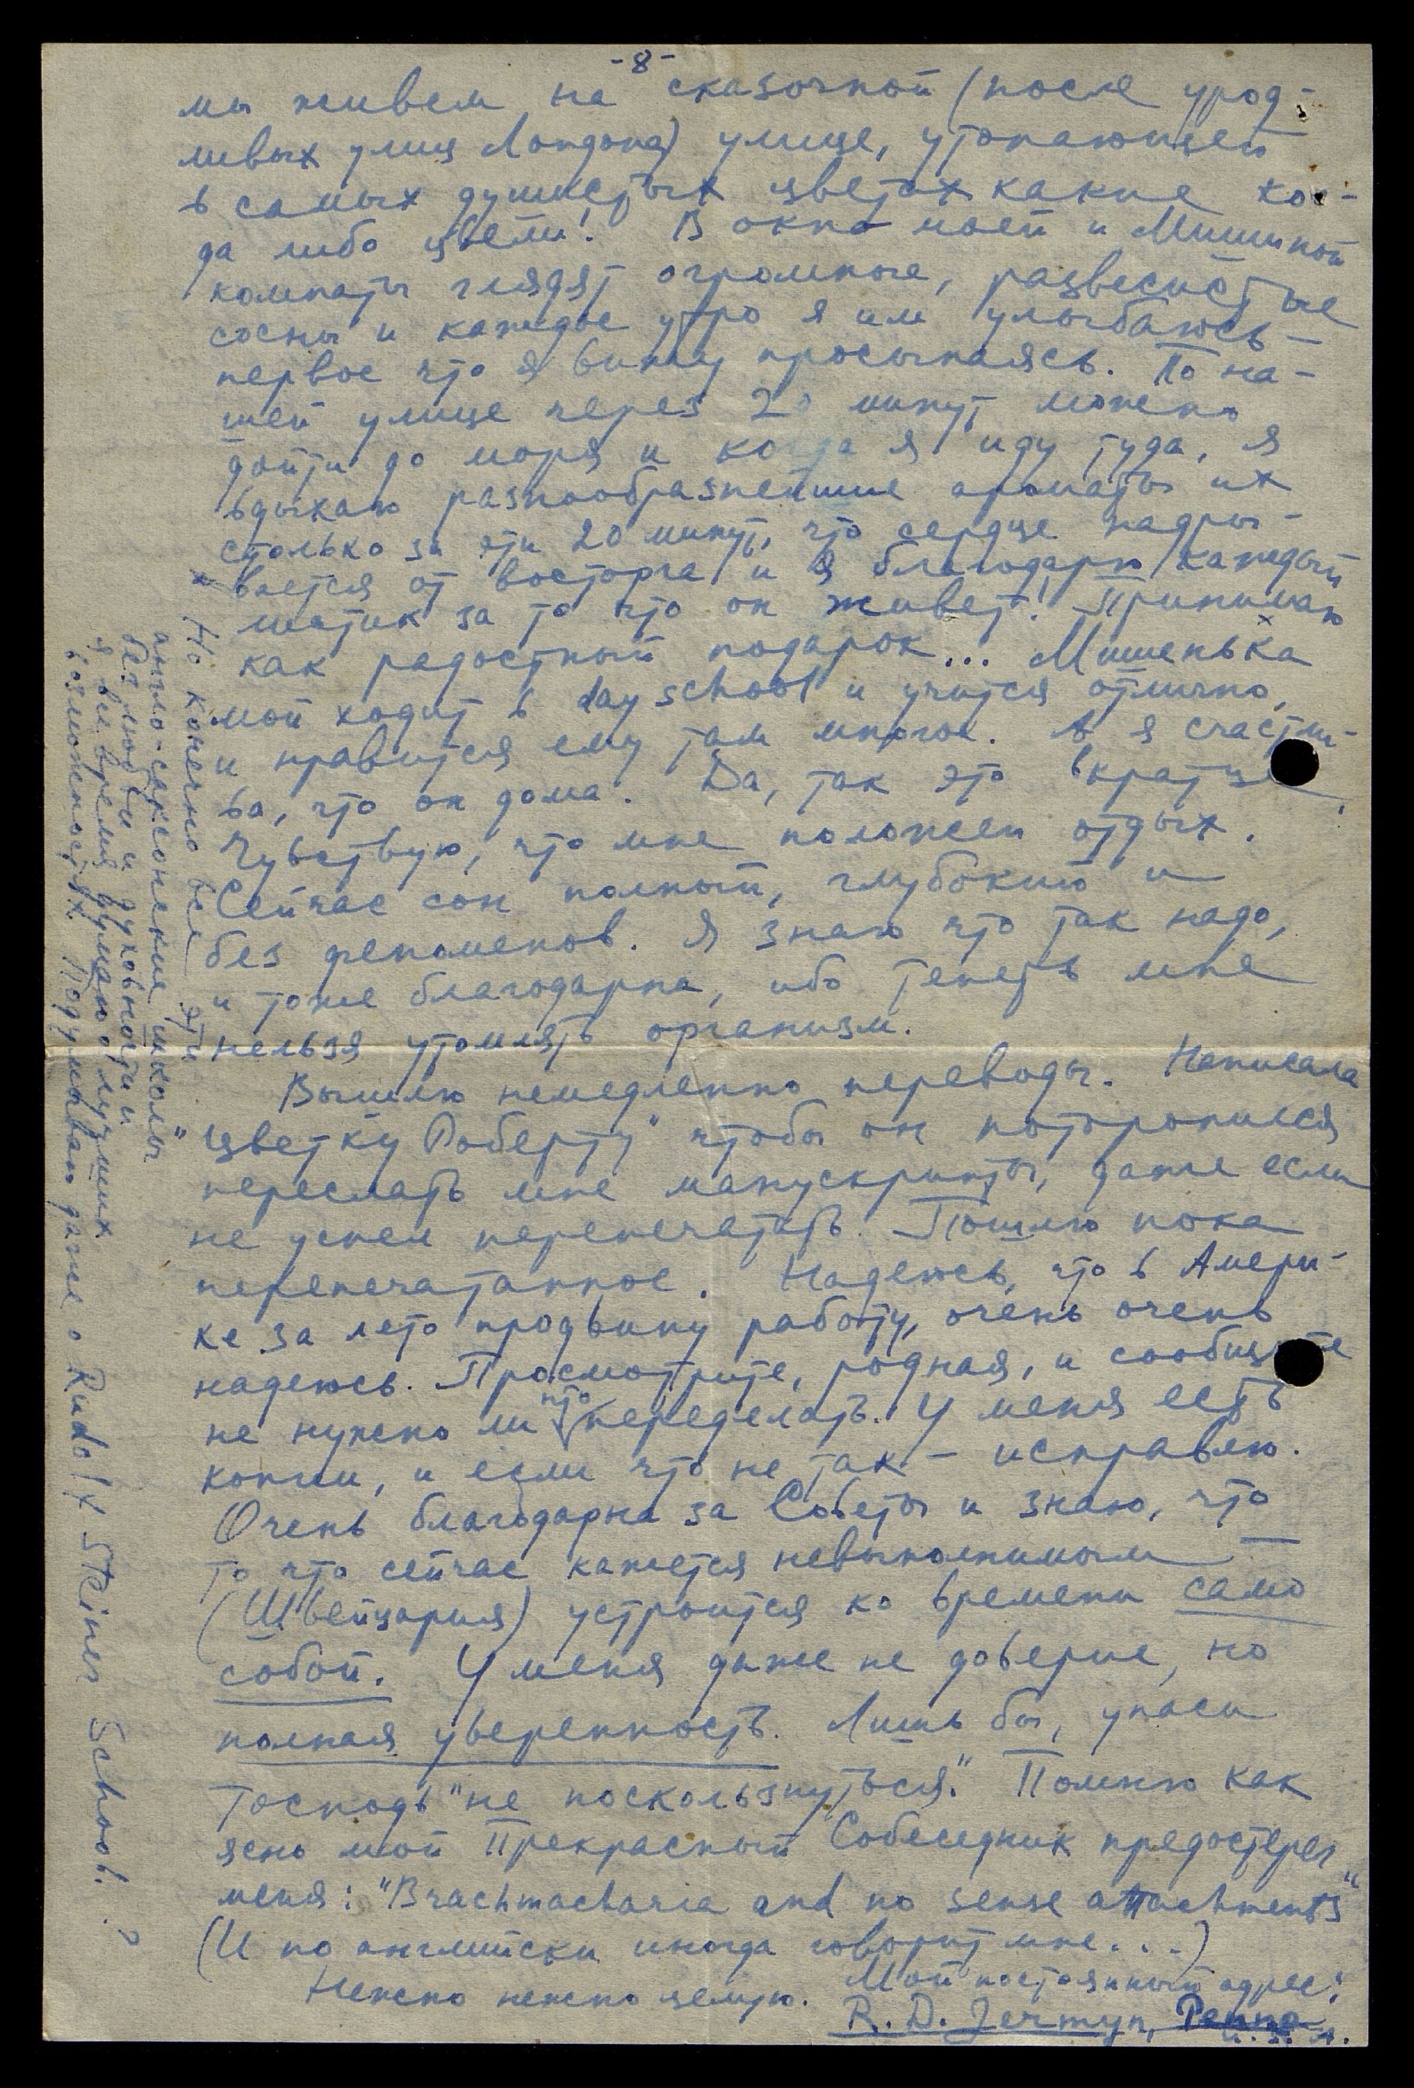 -8-
мы живем на сказочной (после урод-
ливых улиц Лондона) улице, утопающей
в самых душистых цветах какие ког-
да либо цвели! В окна моей и Мишиной
комнаты глядят огромные, развесистые
сосны и каждое утро я им улыбаюсь –
первое что я вижу просыпаясь. По на-
шей улице через 20 минут можно
дойти до моря и когда я иду туда, я
вдыхаю разнообразнейшие ароматы их
столько за эти 20 минут, что сердце надры-
вается от восторга и я благодарю каждый
листик за то что он живет! Принимаю
как радостный подарок... Мишенька x
мой ходит в day school и учится отлично,
и нравится ему там многое. А я счастли-
ва, что он дома. Да, так это вкратце.
Чувствую, что мне положен отдых.
Сейчас сон полный, глубокий и
без феноменов. Я знаю что так надо,
и тоже благодарна, ибо теперь мне
нельзя утомлять организм.
Вышлю немедленно переводы. Написала
"Цветку Роберту" чтобы он поторопился
переслать мне манускрипты, даже если
не успел перепечатать. Пошлю пока
перепечатанное. Надеюсь, что в Амери-
ке за лето продвину работу, очень очень
надеюсь. Просмотрите, родная, и сообщите
не нужно ли что переделать. У меня есть
копии, и если что не так – исправлю.
Очень благодарна за Советы и знаю, что
то что сейчас кажется невыполнимым –
(Швейцария) устроится ко времени само
собой. У меня даже не доверие, но
полная уверенность. Лишь бы, упаси
Господь "не поскользнуться." Помню как
ясно мой Прекрасный Собеседник предостерег
меня: "Brachmacharia and no sense attachments"
(И по английски иногда говорит мне...)
Нежно нежно целую. Мой постоянный адрес:
R. D. Jermyn, Penna
U. S. A.
x Но конечно все эти
англо-саксонские школы"
без любви и духовности и
я все время думаю о лучших
возможностях. Подумываю даже о Rudolf Steiner School. ?